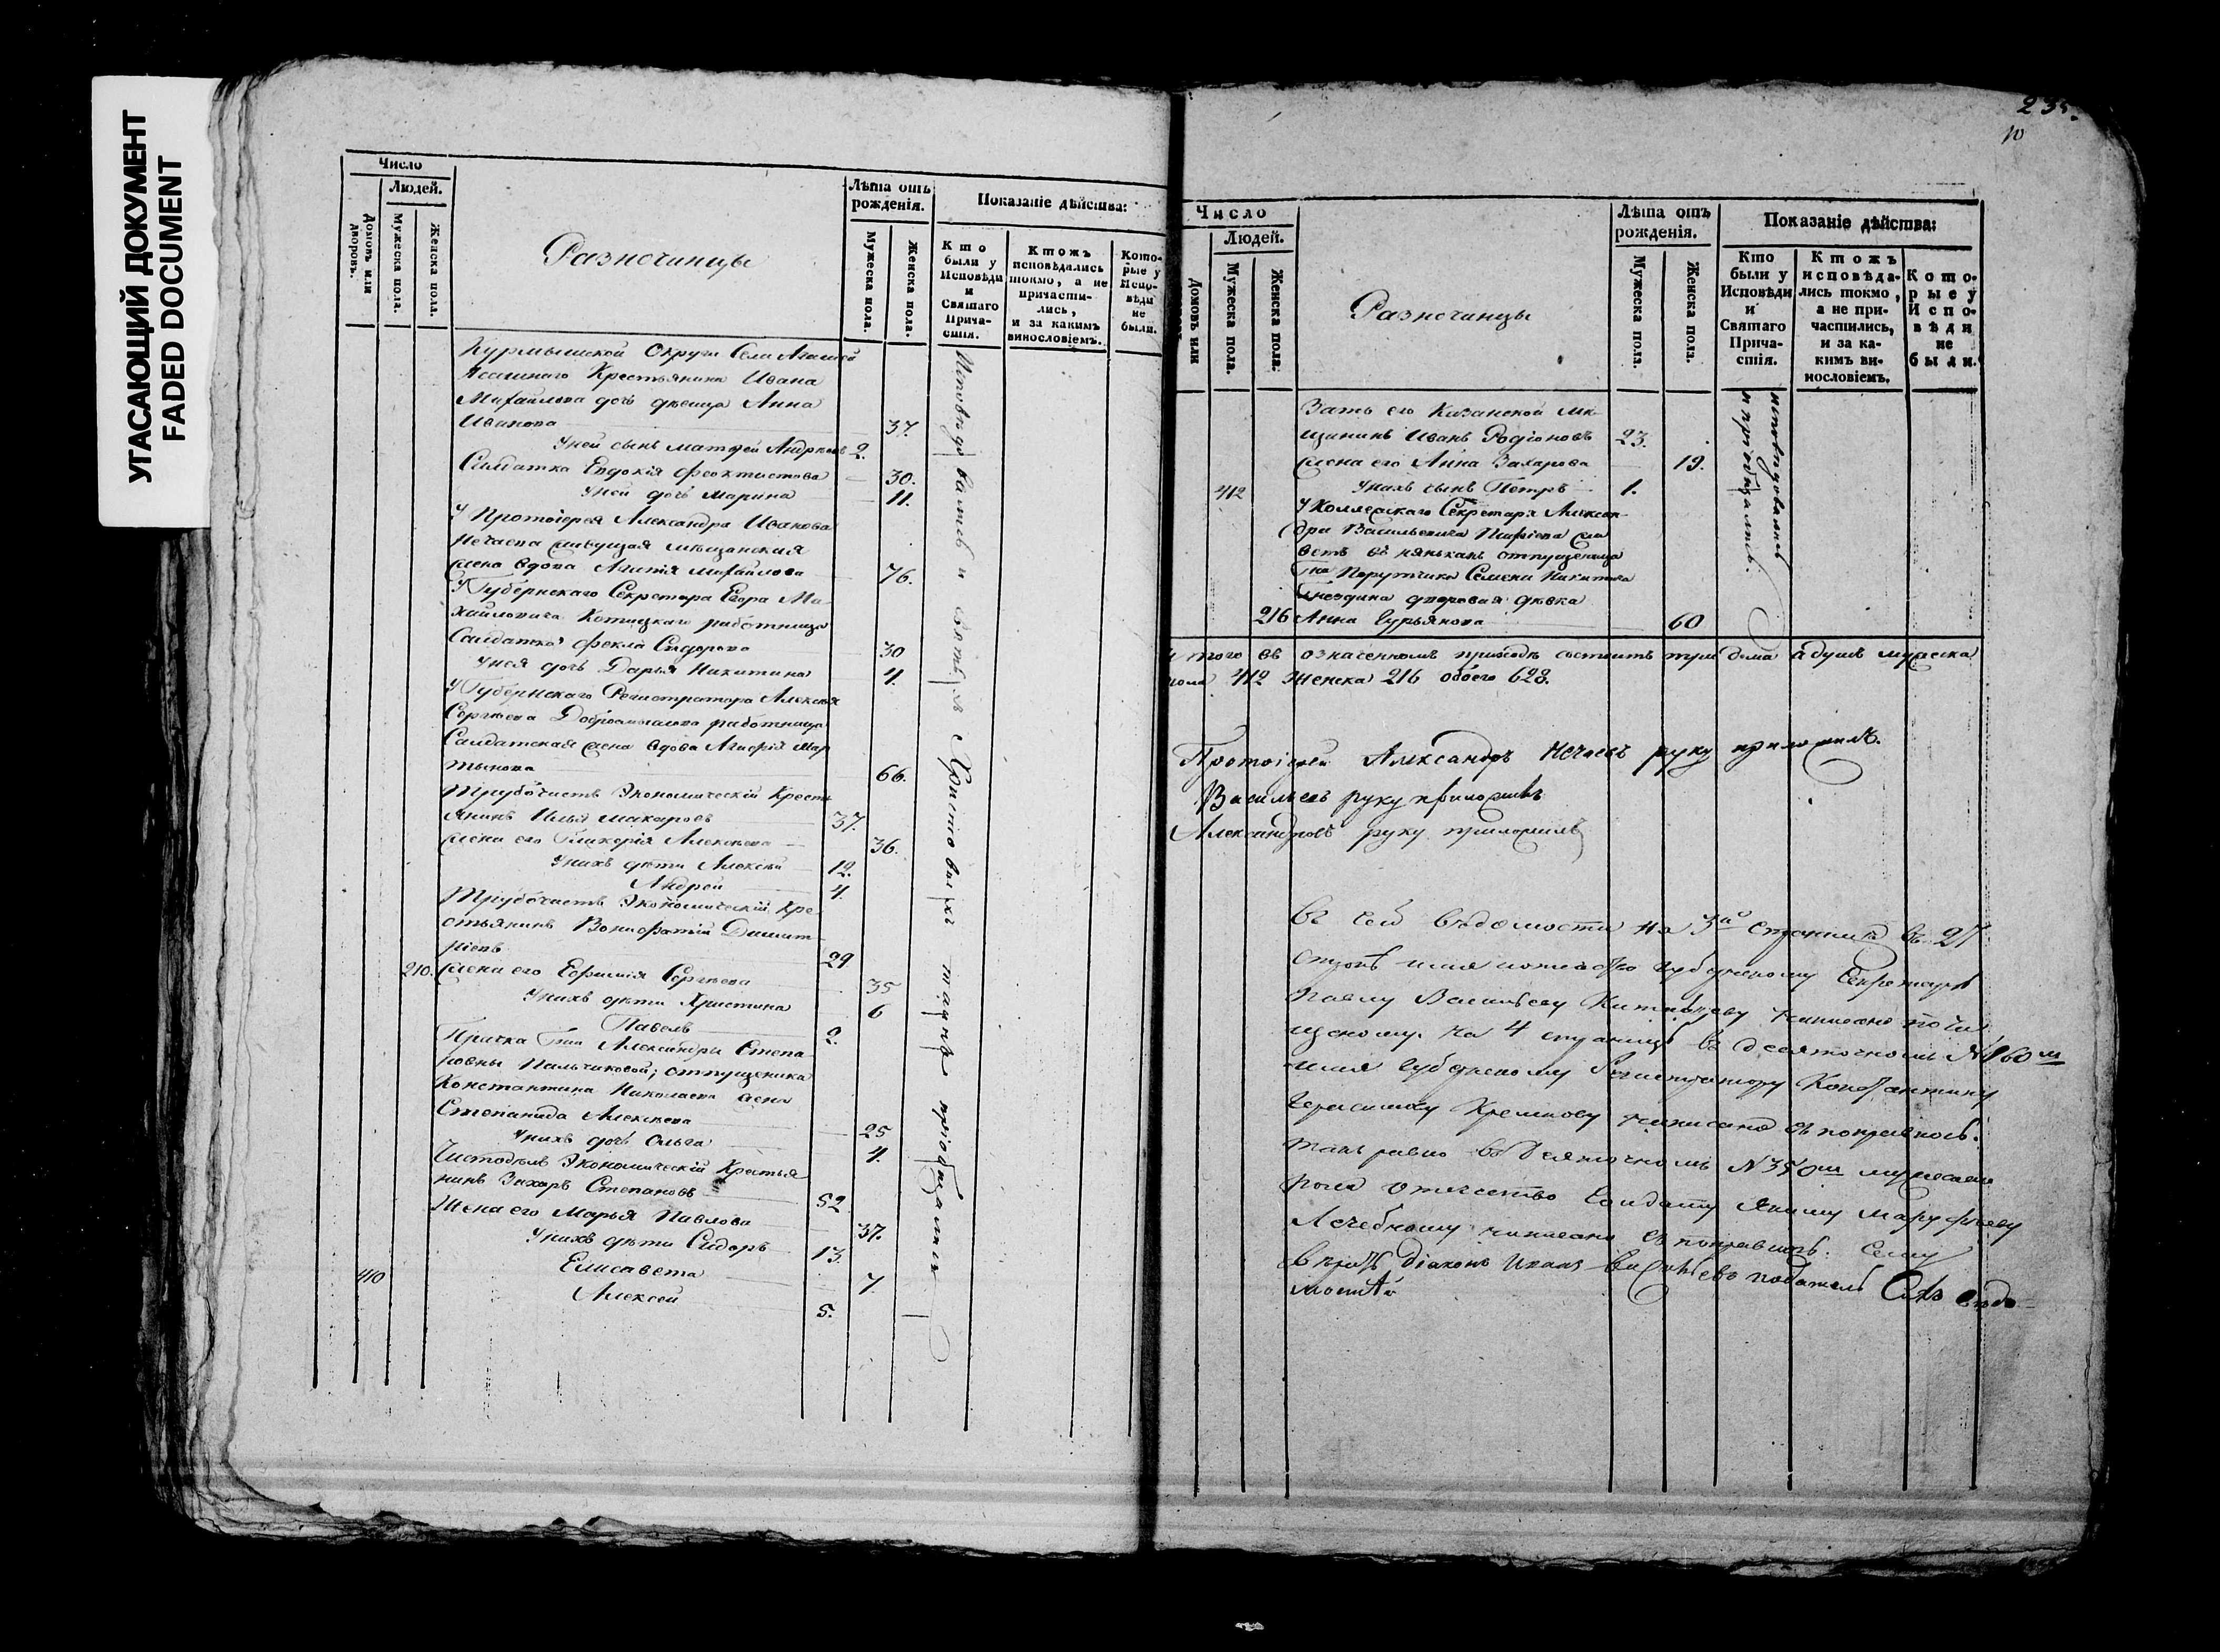 УГАСАЮЩИЙ ДОКУМЕНТ
FADED DOCUMENT
Число
Людей.
Домовъ или дворовъ.
Мужеска пола.
Женска пола.
Разночинцы
Лѣта отъ рожденія.
Мужеска пола.
Женска пола.
Показаніе дѣйства:
Кто были у Исповѣди и Святаго Прича-стія.
Ктожъ исповѣдались токмо, а не причасти-лись, и за какимъ винословіемъ.
Кото-рые у Испо-вѣди не были.
Курмышской Округи Села
Крестьянина Ивана
Михайлова дочь дѣвица Анна
Иванова 37.
У ней сынъ Матвей 2.
Салдатка Евдокія Феоктистова 30.
У ней дочь Марина 11.
У Протоіерея Александра Иванова
Нечаева живущая мѣщанская
жена вдова Михайлова 76.
У Губернскаго Секретаря Егора Ми-
хайловича работница
Салдатка Фекла Сидорова 30
У нея дочь Дарья Никитина 4.
У Губернскаго Регистратора Алексея
Сергѣева Добросмыслова работница
Салдатская жена вдова Мар
тынова 66.
Трубочистъ Экономическій Кресть
янинъ Илья Макаровъ 37.
жена его Гликерія Алексѣева 36.
У нихъ дѣти Алексѣй 12.
Андрей 4.
Трубочистъ Экономическій Кре-
стьянинъ Вонифатій Димит-
ріевъ 29
210. жена его Ефимія Сергѣева 35
У нихъ дѣти Христина 6
Павелъ 2.
Прачка Гжи Александры Степа
новны Пальчиковой, отпущеника
Константина Николаева жена
Степанида Алексѣева 25
У нихъ дочь Ольга 4.
Экономическій Крестья
нинъ Захаръ Степановъ 52
Жена его Марья Павлова 37.
У нихъ дѣти Сидоръ 13.
Елисавета 7.
410 Алексей 5.
Исповѣдовались и Святыхъ Христовыхъ таинъ пріобщались
235.
10
Число
Людей.
Домовъ или
Мужеска пола.
Женска пола.
Разночинцы
Лѣта отъ рожденія.
Мужеска пола.
Женска пола.
Показаніе дѣйства:
Кто были у Исповѣди и Святаго Прича-стія.
Ктожъ исповѣда-лись токмо, а не при-частились, и за ка-кимъ ви-нословіемъ.
Кото-рые у Испо-вѣди не были.
Зать его Казанской мѣ-
щанинъ Иванъ Родіоновъ 23.
жена его Анна Захарова 19.
412 У нихъ сынъ Петръ 1.
У Коллежскаго Секретаря Алексан
дра Васильевича жи
ветъ въ нянькахъ отпущеница
Гна Порутчика Семена Никитина
дворовая дѣвка
216 Анна Гурьянова 60
исповѣдовались и пріобщались.
Итого въ означенномъ приходѣ состоитъ три дома а душъ мужеска
пола 412 женска 216 обоего 628.
Протоіерей Александръ Нечаевъ руку приложилъ.
Васильевъ руку приложилъ
Александровъ руку приложилъ
Въ сей вѣдомости на 3й страницѣ въ 27
строкѣ имя Губернскому Секретарю
Павлу Васильеву написано по чи
щеному. На 4 страницѣ въ десяточномъ N 160м
имя Губернскому Регистратору Константину
написано съ поправкою.
такъ равно въ десяточномъ N 350м мужеска
пола отчество Солдату Якиму
написано съ поправкою. Сему
вѣритъ діаконъ Иванъ Васильевъ податель Сихъ вѣдо-
мостей